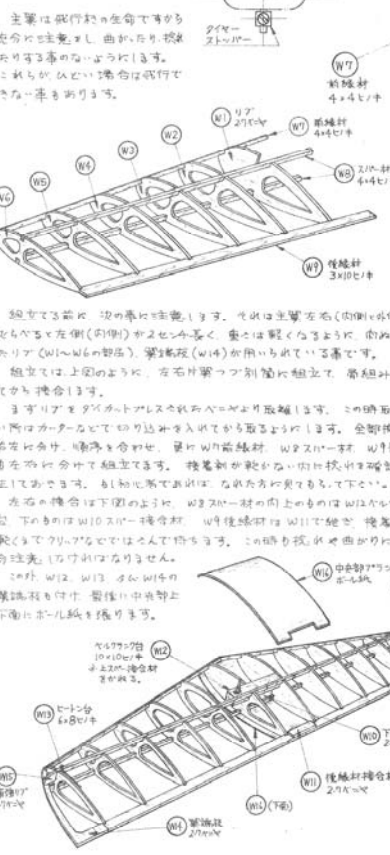 主翼は飛行機の生命ですから
充分に注意をし曲がったり、捩れ
たりする事のないようにします。
これらが、ひどい場合は飛行で
きない事もあります。
タイヤー
ストッパー
W7
前縁材
4×4ヒノキ
W1 リブ
2㍉ベニヤ
W7 前縁材
4×4ヒノキ
W2
W3
W4
W5
W6
W8 スパー材
4×4ヒノ
W9 後縁材
3×10ヒノキ
組立てる前に、次の事に注意します。それは主翼左右(内側と外側
くらべると左側(内側)が2センチ長く、重さは軽くなるように、肉ぬ
たリブ(W1〜W6の部品)、翼端板(W14)が用いられている事です。
組立ては、上図のように、左右片翼づつ別箇に組立て、骨組み
てから接合します。
まずリブをダイカットプレスされたベニヤより取離します。この時取
い所はカーターなどで切り込みを入れてから取るようにします。全部
左右に分け、順序を合わせ、更にW7前縁材、W8スパー材、W9
左右に分けて組立てます。接着剤が乾かない内に捩れを
正しておきます。もし初心者であれば、なれた方に見てもらって下さい。
左右の接合は下図のように、W8スパー材の内上のものはW12ベル
下のものはW10スパー接合材、W9後縁材はW11で継ぎ、接着
乾くまでクリップなどではさんで待ちます。この時も捩れや曲がりに
注意しなければなりません。
この外、W12、W13 W14の
翼端板を付け、最後に中央部上
下面にボール紙を張ります。
W16 中央部プラン
ボール紙
ベルクランク台
10×10ヒノキ
上スパー接合材
をかねる。
W12
W13 ヒートン台
6×8ヒノキ
W10 下
W11 後縁材接合材
2㍉ベニヤ
W16 (下面)
W15
リブ
2㍉ベニヤ
W14 翼端板
2㍉ベニヤ